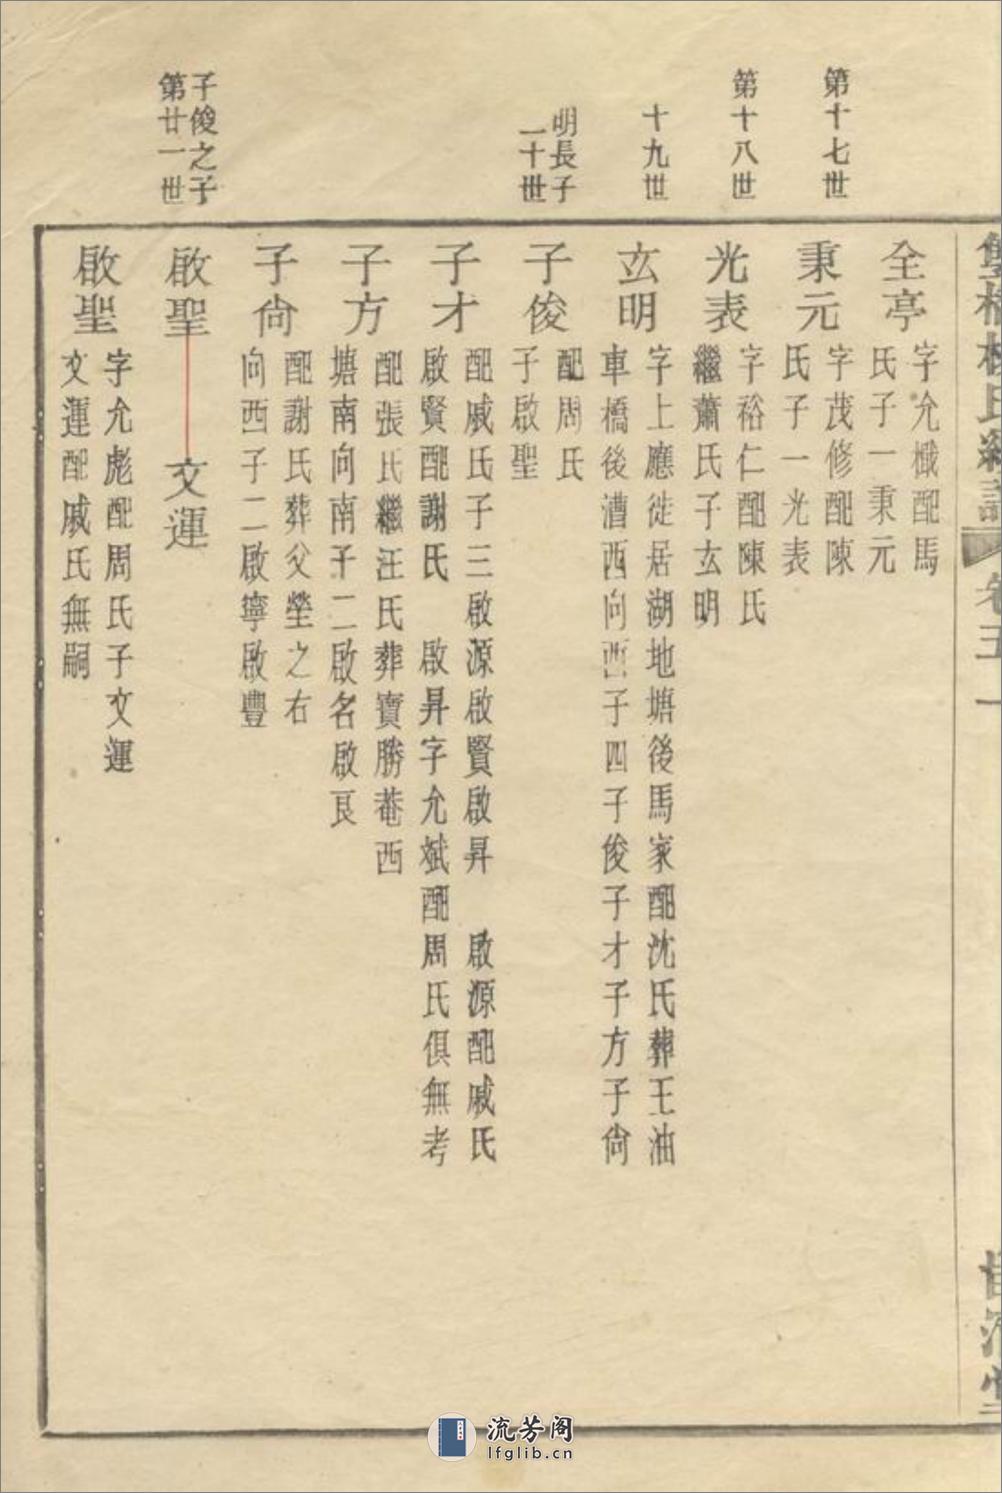 卷五一
全亭
字允檝配馬
氏子一秉元
第十七世
秉元
字茂修配陳
氏子一光表
第十八世
光表
字裕仁配陳氏
繼蕭氏子玄明
十九世
玄明
字上應徙居湖地塘後馬家配沈氏葬王油
車橋後漕西向西子四子俊子才子方子尙
明長子
二十世
子俊
配周氏
子啟聖
子才
配戚氏子三啟源啟賢啟昇 啟源配戚氏
啟賢配謝氏 啟昇字允斌配周氏俱無考
子方
配張氏繼汪氏葬寶勝菴西
塘南向南子二啟名啟艮
子尙
配謝氏葬父塋之右
向西子二啟寧啟豐
子俊之子
第廿一世
啟聖 文運
啟聖
字允彪配周氏子文運
文運配戚氏無嗣
流芳阁
lfglib.cn